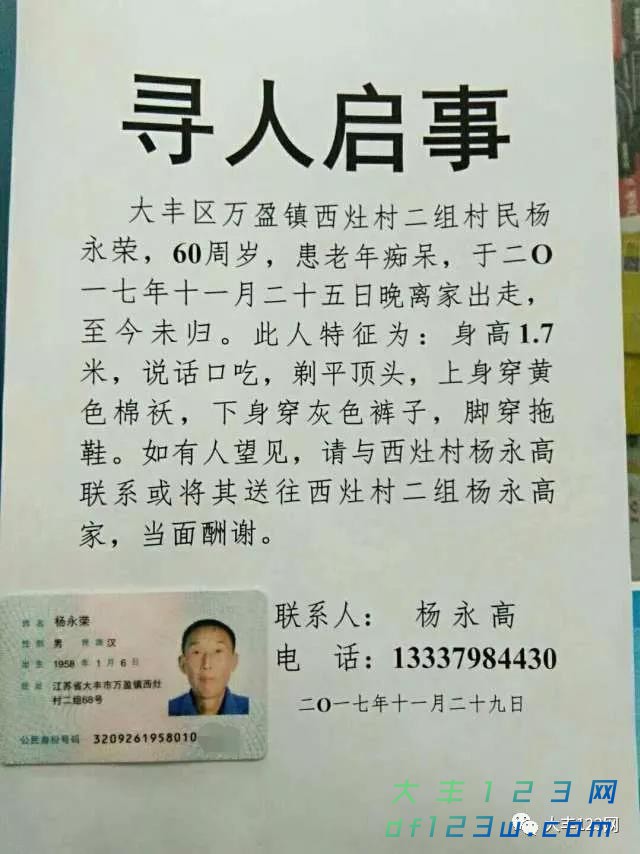 寻人启事
大丰区万盈镇西灶村二组村民杨
永荣，60周岁，患老年痴呆，于二O
一七年十一月二十五日晚离家出走，
至今未归。此人特征为：身高1.7
米，说话口吃，剃平顶头，上身穿黄
色棉袄，下身穿灰色裤子，脚穿拖
鞋。如有人望见，请与西灶村杨永高
联系或将其送往西灶村二组杨永高
家，当面酬谢。
联系人： 杨永高
电 话：13337984430
二O一七年十一月二十九日
姓名 杨永荣
性别 男 民族 汉
出生 1958 年 1 月 6 日
住址 江苏省大丰市万盈镇西灶
村二组68号
公民身份号码 3209261958010
大丰123网
df123w.com
大丰123网